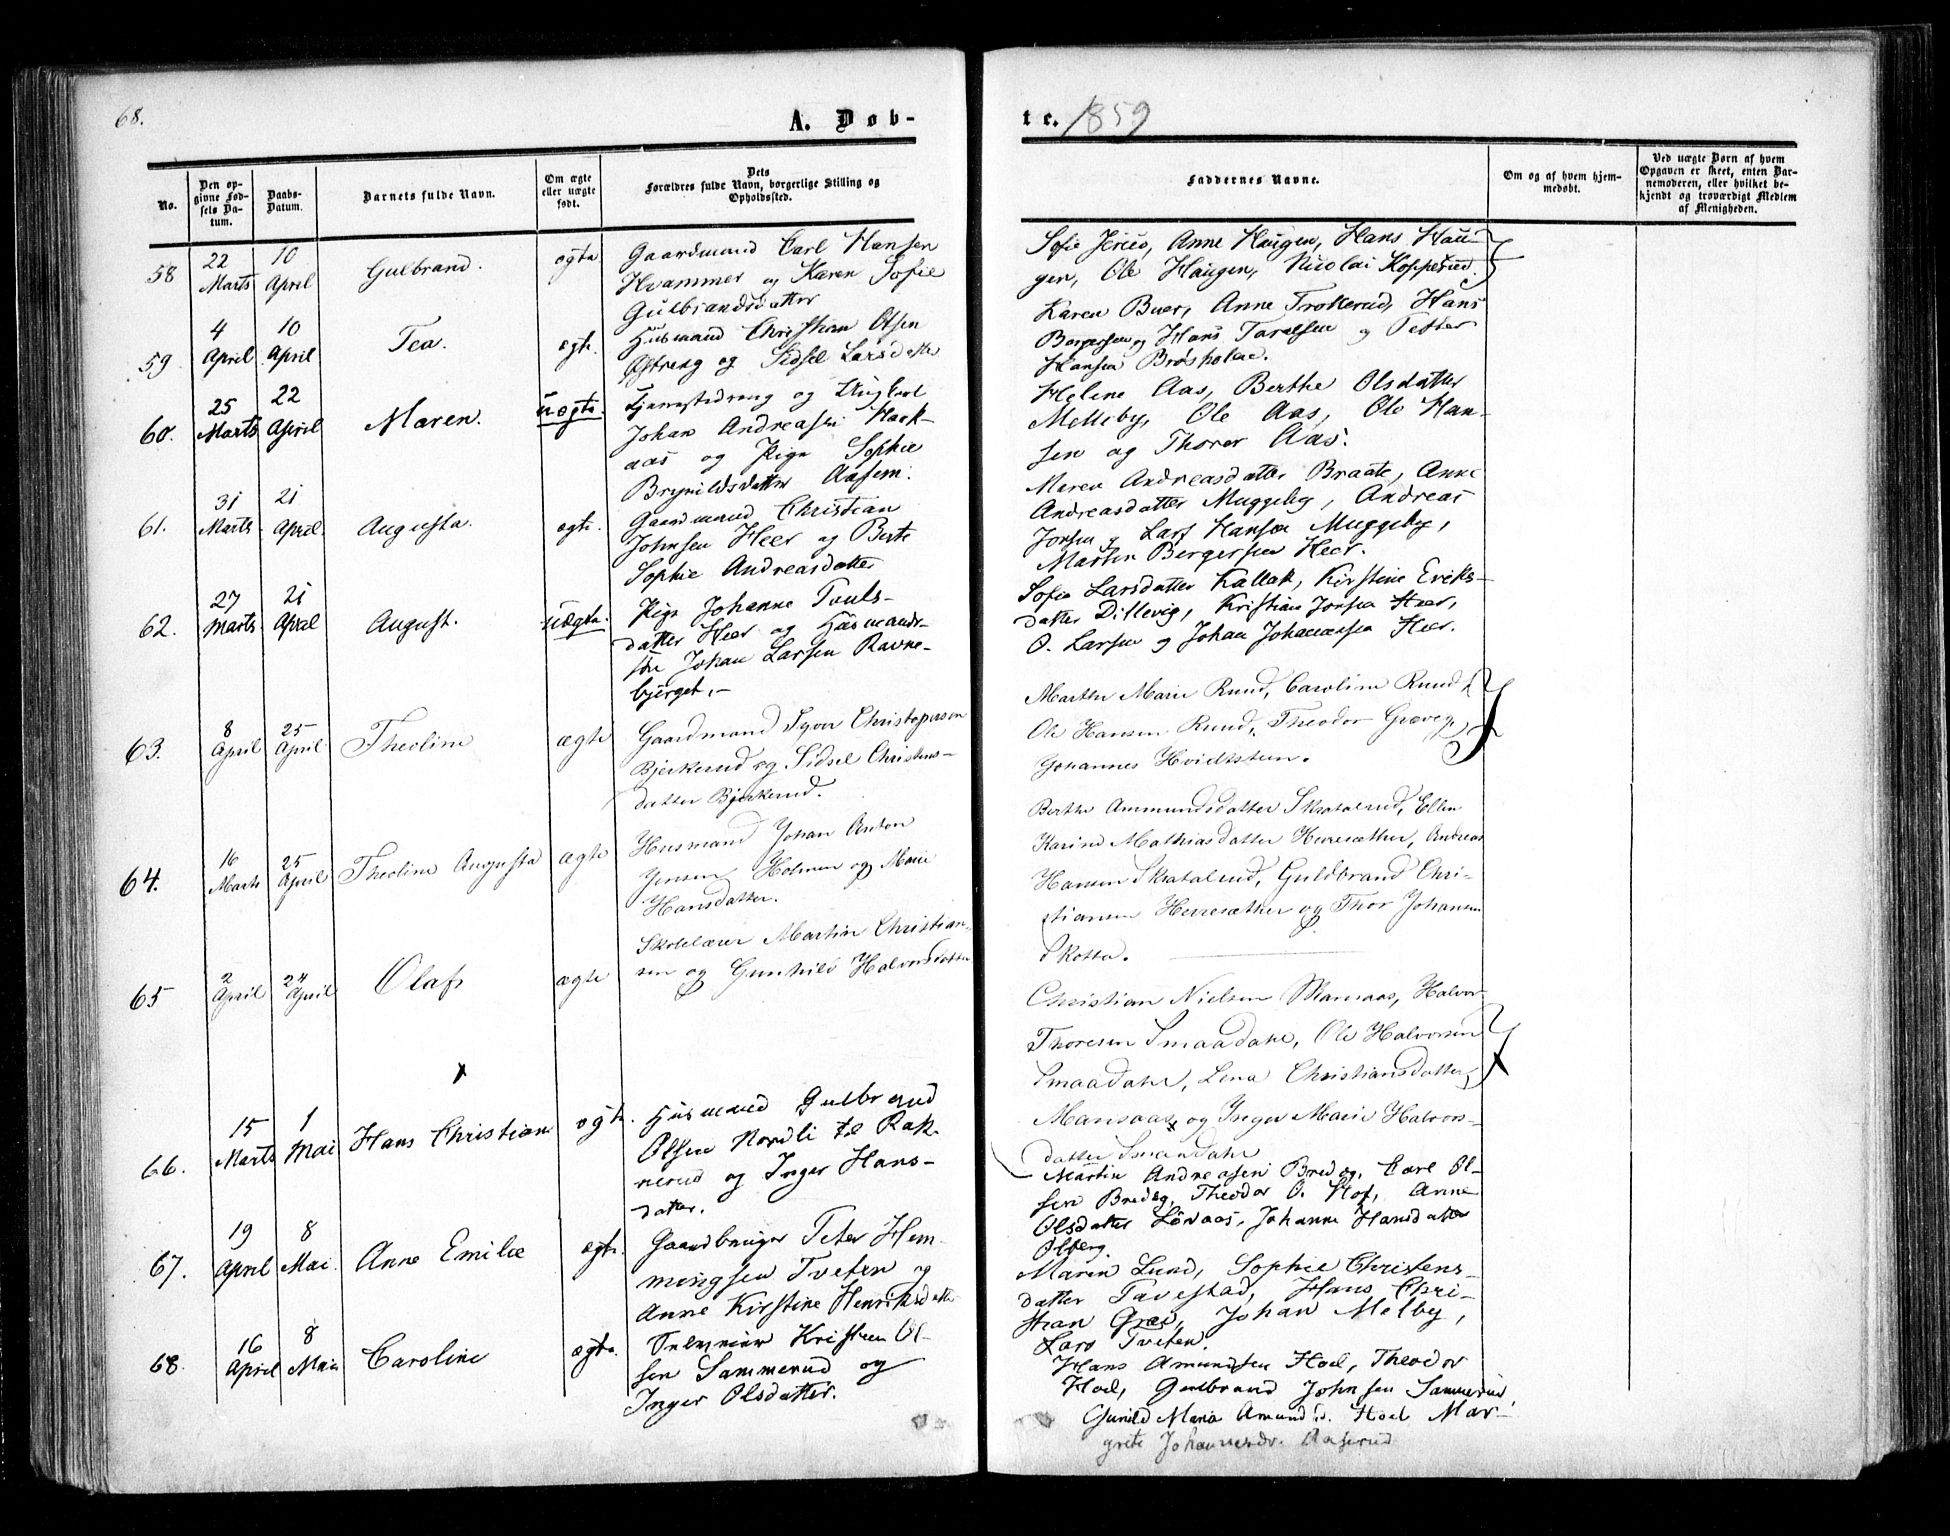 68.
A. Døb-
te. 1859
No.
Den opgivne Fødsels Datum.
Daabs-Datum.
Barnets fulde Navn.
Om ægte eller uægte født.
Dets Forældres fulde Navn, borgerlige Stilling og Opholdssted.
Faddernes Navne.
Om og af hvem hjemmedøbt.
Ved uægte Børn af hvem Opgaven er skeet, enten Barnemoderen, eller hvilket bekjendt og troværdigt Medlem af Menigheden.
58
22 Marts
10 April
Gulbrand.
ægte
Gaardmand Carl Hansen
Hvammer og Karen Sofie
Gulbrandsdatter
Sofie, Anne Haugen, Hans Hau-
gen, Ole Haugen, Nicolai Kopperud.
59
4 April
10 April
Tea.
ægte.
Husmand Christian Olsen
Østreng og Sidsel Larsdatter
Karen Buer, Anne Trollerud, Hans
Bergersen, Hans Taralsen og Petter
Hansen Brosholm.
60.
25 Marts
22 April
Maren.
uægte.
Tjenestedreng og Ungkarl
Johan Andreasen Haek-
aas og Pige Sophie
Brynildsdatter Aasem.
Helene Aas, Berthe Olsdatter
Melleby, Ole Aas, Ole Han-
sen og Thorer Aas.
61.
31 Marts
21 April.
Augusta.
ægte.
Gaardmand Christian
Johnsen Heer og Berte
Sophie Andreasdatter
Maren Andreasdatter Braate, Anne
Andreasdatter Muggeby, Andreas
Jonsen og Lars Hansen Muggeby,
Martin Bergersen Heer.
62.
27 Marts
21 April
August.
uægte.
Pige Johanne Pouls-
datter Heer og Husmands-
søn Johan Larsen Ravne-
bjerget.-
Sofie Larsdatter Kallak, Kirstine Eriks-
datter Dillevig, Kristian Jonsen Heer,
O. Larsen og Johan Johannessen Heer.
63.
8 April
25 April
Theoline
ægte
Gaardmand Syver Christopersen
Bjerkerud og Sidsel Christens-
datter Bjerkerud.
Marthe Marie Ruud, Caroline Ruud,
Ole Hansen Ruud, Theodor Græveg,
Johannes Hvidtsteen.
64.
16 Marts
25 April
Theoline Augusta
ægte
Husmand Johan Anton
Jensen Holmen og Marie
Hansdatter.
Berthe Ammundsdatter Skatalrud, Ellen
Karine Mathiasdatter Herresæther, Andreas
Hansen Skatalrud, Guldbrand Chri-
stiansen Herresæther og Thor Johansen
Skotta.
65
2 April
24 April
Olaf
ægte
Skolelærer Martin Christian-
sen og Gunhild Halvorsdatter
Christian Nielsen Mansaas, Halvor
Thoresen Smaadahl, Ole Halvorsen
Smaadahl, Lena Christiansdatter
Mansaas og Inger Marie Halvors-
datter Smaadahl
66.
15 Marts
1 Mai
Hans Christian
ægte.
Husmand Gulbrand
Olsen Nordli til Rak-
nerud og Inger Hans-
datter.
Martin Andreasen Bredeg, Carl Ol-
sen Bredeg, Theodor O. Hof, Anne
Olsdatter Løvaas, Johanne Hansdatter
Olberg.
67.
19 April
8 Mai.
Anne Emilie
ægte.
Gaardbruger Peter Hem-
mingsen Tveten og
Anne Kirstine Henriksdatter
Maren Lund, Sophie Christens-
datter Tavestad, Hans Chri-
stian Græe, Johan Melby,
Lars Tveten.
68.
16 April
8 Mai
Caroline
ægte.
Kristian Ol-
sen Sammerud og
Inger Olsdatter.
Hans Amundsen Hoel, Theodor
Hoel, Gulbrand Johnsen Sammerud
Gunild Maria Amundsd. Hoel Mar-
grete Johannesdr. Aaserud